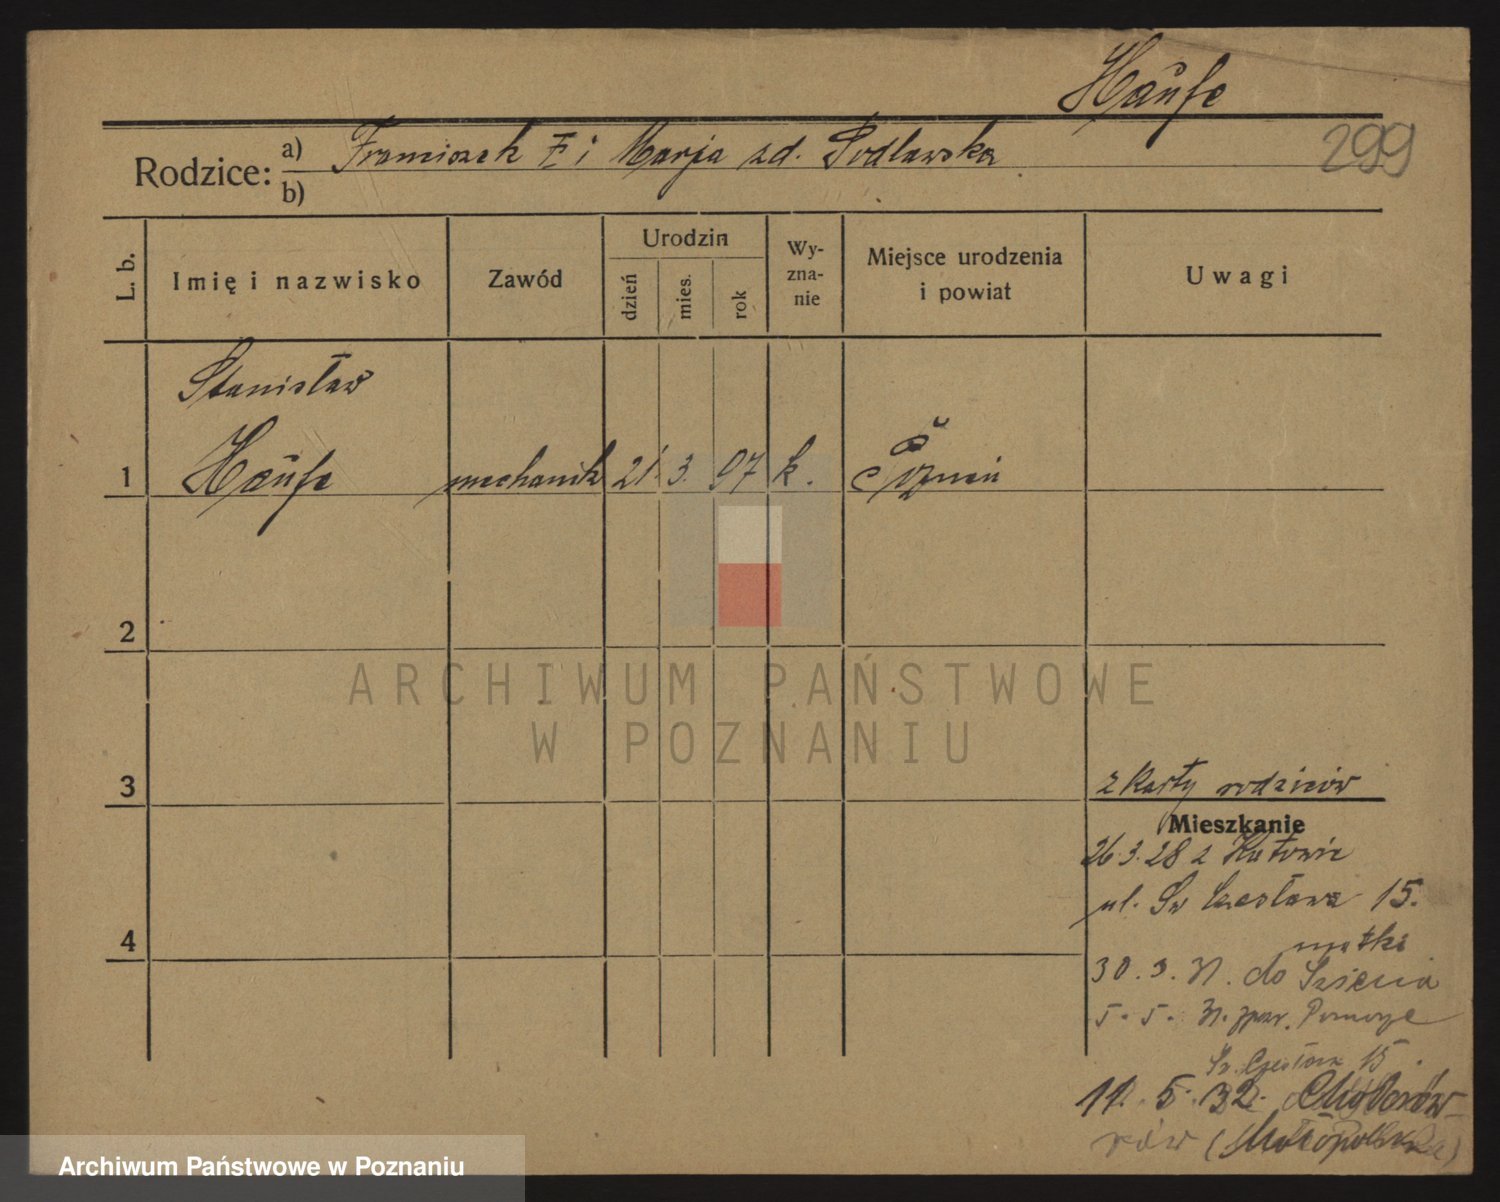 Haŭfe
299
Rodzice: a) Franciszek F i Marja zd. Podlawska
b)
L. b. Imię i nazwisko Zawód Urodzin dzień mies. rok Wyznanie Miejsce urodzenia i powiat Uwagi
Stanisław
1 Haŭfe mechanik 21. 3. 97 k.
2
3 z karty rodziców
Mieszkanie
26.3.28 z
ul. Św Czesława 15.
4 matki
30. 3. 31. do
5. 5. 31.
Św. Czesława 15
11. 5. 32.
rów (Małopolska)
ARCHIWUM PAŃSTWOWE
W POZNANIU
Archiwum Państwowe w Poznaniu